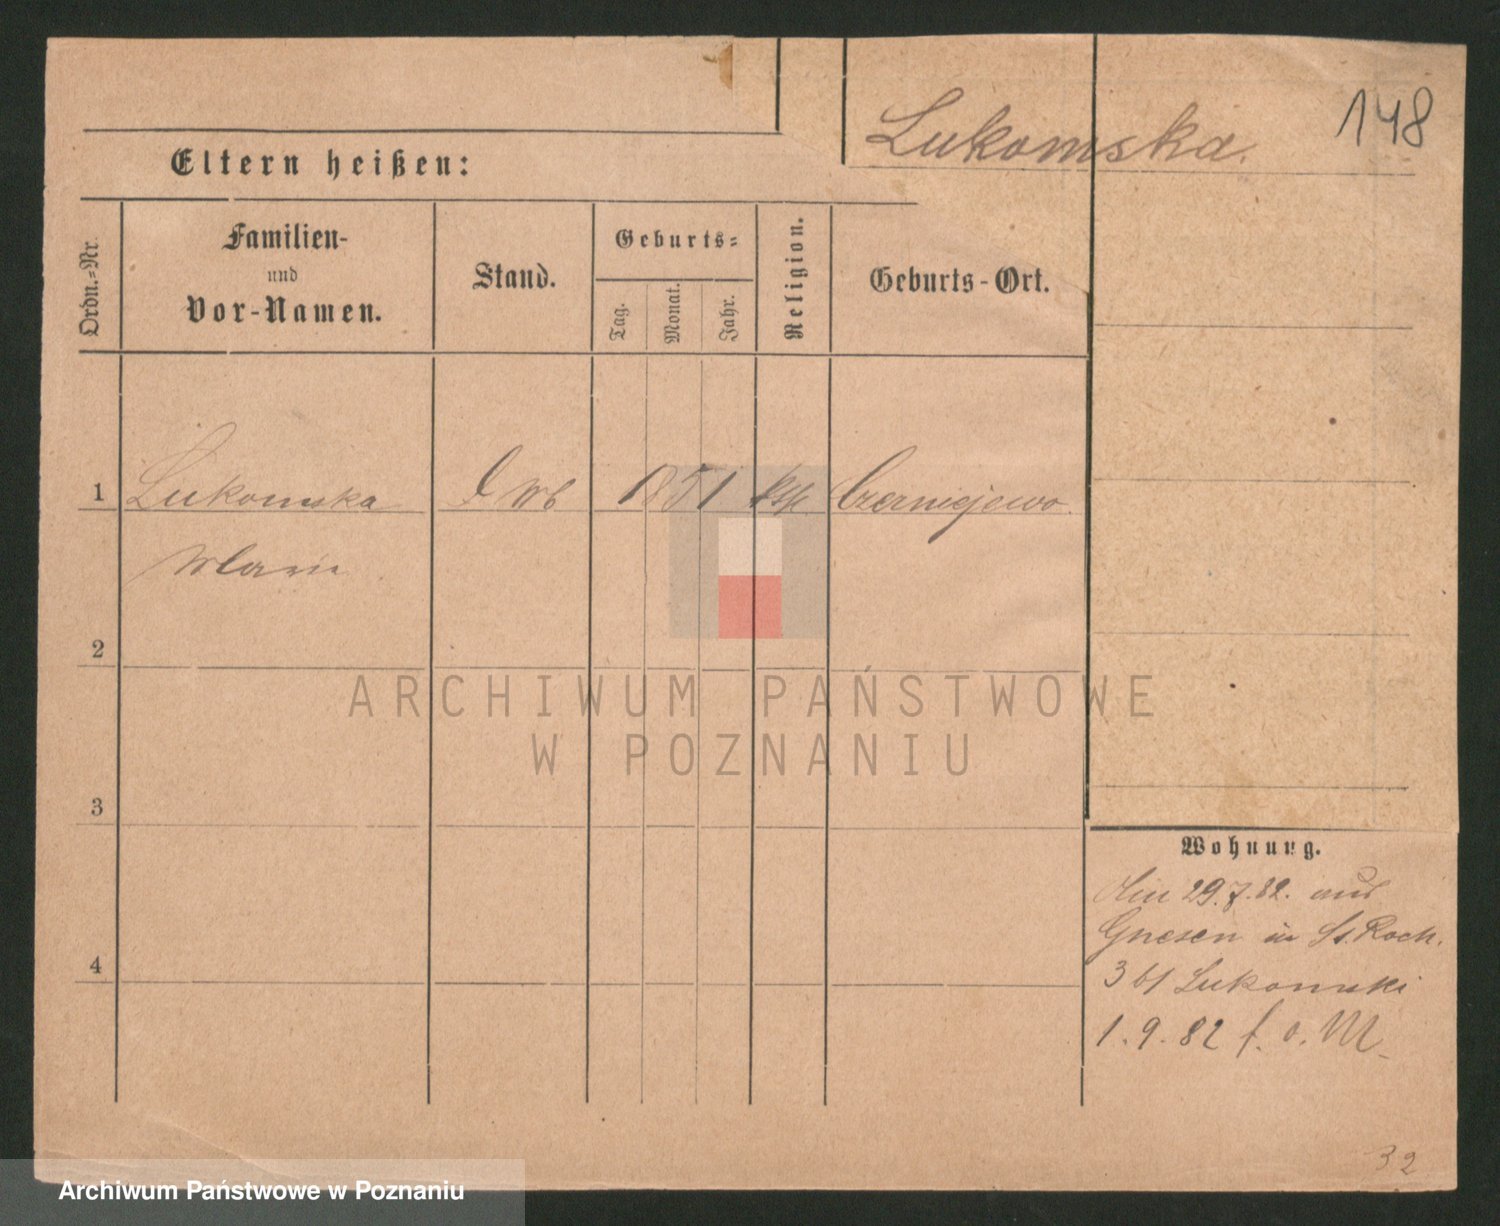 Lukomska.
148
Eltern heißen:
Ordn.=Nr.
Familien-
und
Vor-Namen.
Stand.
Geburts=
Tag.
Monat.
Jahr.
Religion.
Geburts-Ort.
1 Lukomska 1851 Czerniejewo.
Marie
2
3
4
Wohnung.
29.7.82. aus
Gnesen in St. Roch.
3 b/ Lukomski
1.9.82 f. o. M.
32
ARCHIWUM PAŃSTWOWE
W POZNANIU
Archiwum Państwowe w Poznaniu